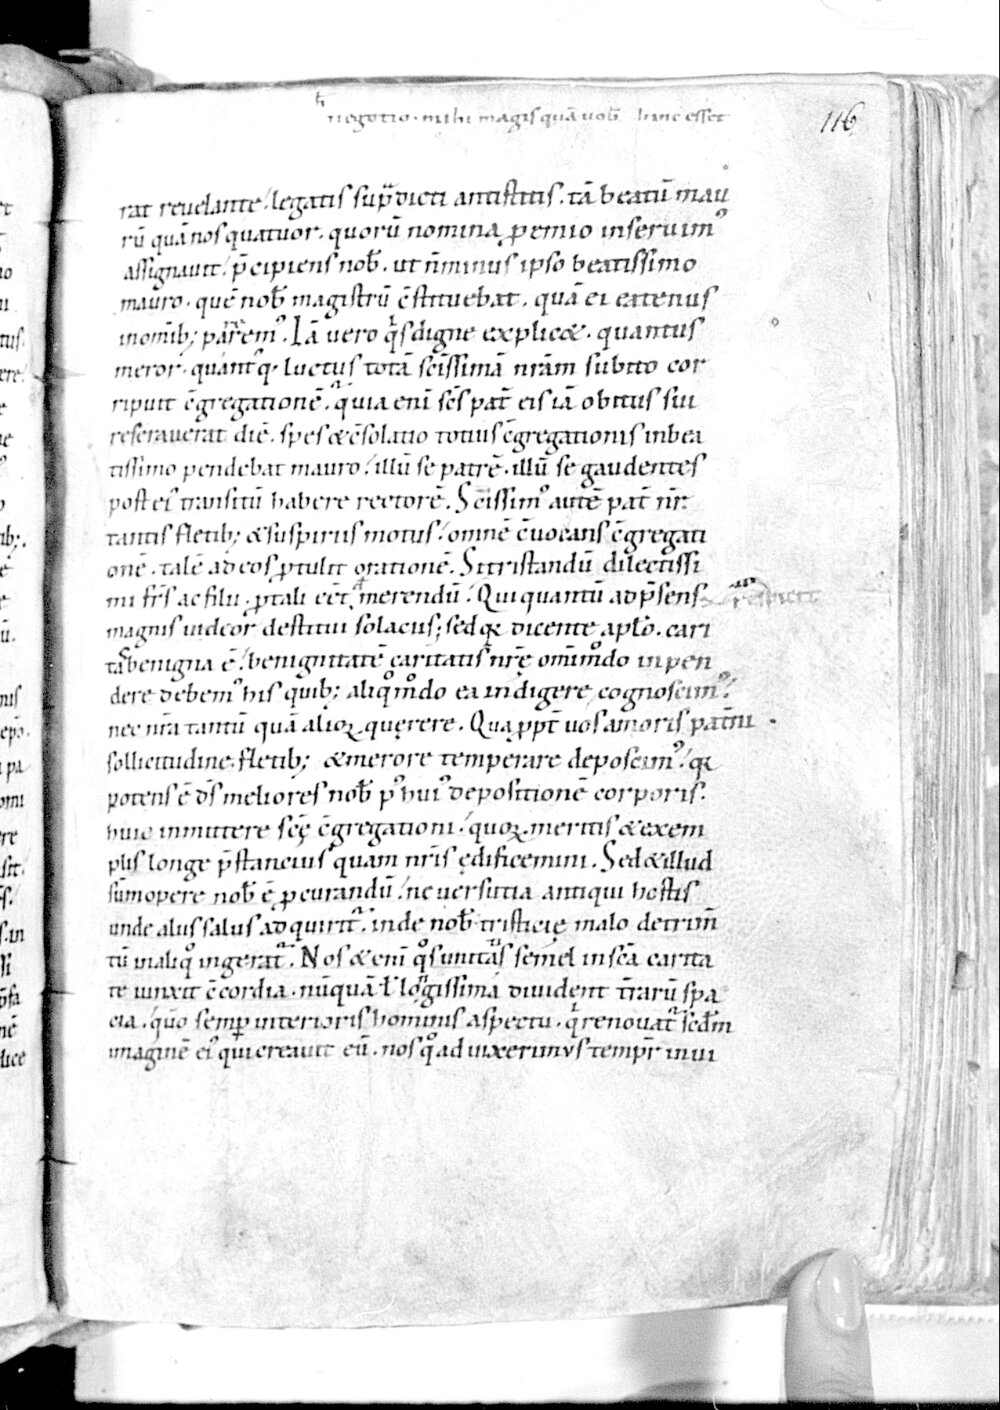 negotio · mihi magis quā uob̄ hinc esset
116
rat reuelante / legatis sup̄dicti antistitis . tā beatū mau
rū quā nos quatuor . quorū nomina p̱emio inseruim᷒
assignauit / p̄cipiens nob̄ . ut n̄ minus ipso beatissimo
mauro . quē nob̄ magistrū c̄stituebat . quā ei eatenus
inomīb; parērem᷒ . Iā uero q̇s digne explicet . quantus
meror . quant᷒q; luctus totā sc̄issimā nrām subito cor
ripuit c̄gregationē . quia enī sc̄s pat̄ eis iā obitus sui
reserauerat diē . spes & c̄solatio totius c̄gregationis inbea
tissimo pendebat mauro / illū se patrē . illū se gaudentes
post ei᷒ transitū habere rectorē . Sc̄issim᷒ autē pat̄ nr̄
tantis fletib; & suspiriis motus / omnē c̄uocans c̄gregati
onē . talē ad eos p̱tulit orationē . Si tristandū dilectissi
mi fr̄s ac filii . p̱ tali eēt merendū . Qui quantū ad p̄sens respicit
magnis uideor destitui solaciis ; sed qꝛ dicente apl̄o . cari
tas benigna ē / benignitatē caritatis nrē om̄imodo inpen
dere debem᷒ his quib; aliqͦmodo ea indigere cognoscim᷒ /
nec nr̄a tantū quā alioꝝ querere . Qua p̱pt̄ uos amoris pat̄ni
sollicitudine . fletib; & merore temperare deposcim᷒ / qꝛ
potens ē ds̄ meliores nob̄ p᷒ hui᷒ depositionē corporis .
huic inmittere scę c̄gregationi / quoꝝ meritis & exem
plis longe p̄stancius quam nr̄is edificemini . Sed & illud
sūmopere nob̄ ē p̱curandū / ne uersutia antiqui hostis
unde aliis salus adquirit̄ . inde nob̄ tristicię malo detrim̄
tū in aliqͦ ingerat̄ . Nos & enī qͦs unitas semel in scā carita
te iunxit c̄cordia . nūquā l̄ longissima diuident t̄rarū spa
cia . quo semp̱ interioris hominis aspectu . q̇ renouat̄ sedm̄
imaginē ei᷒ qui creauit eū . nos qͦad uixerimus temp̱r inui